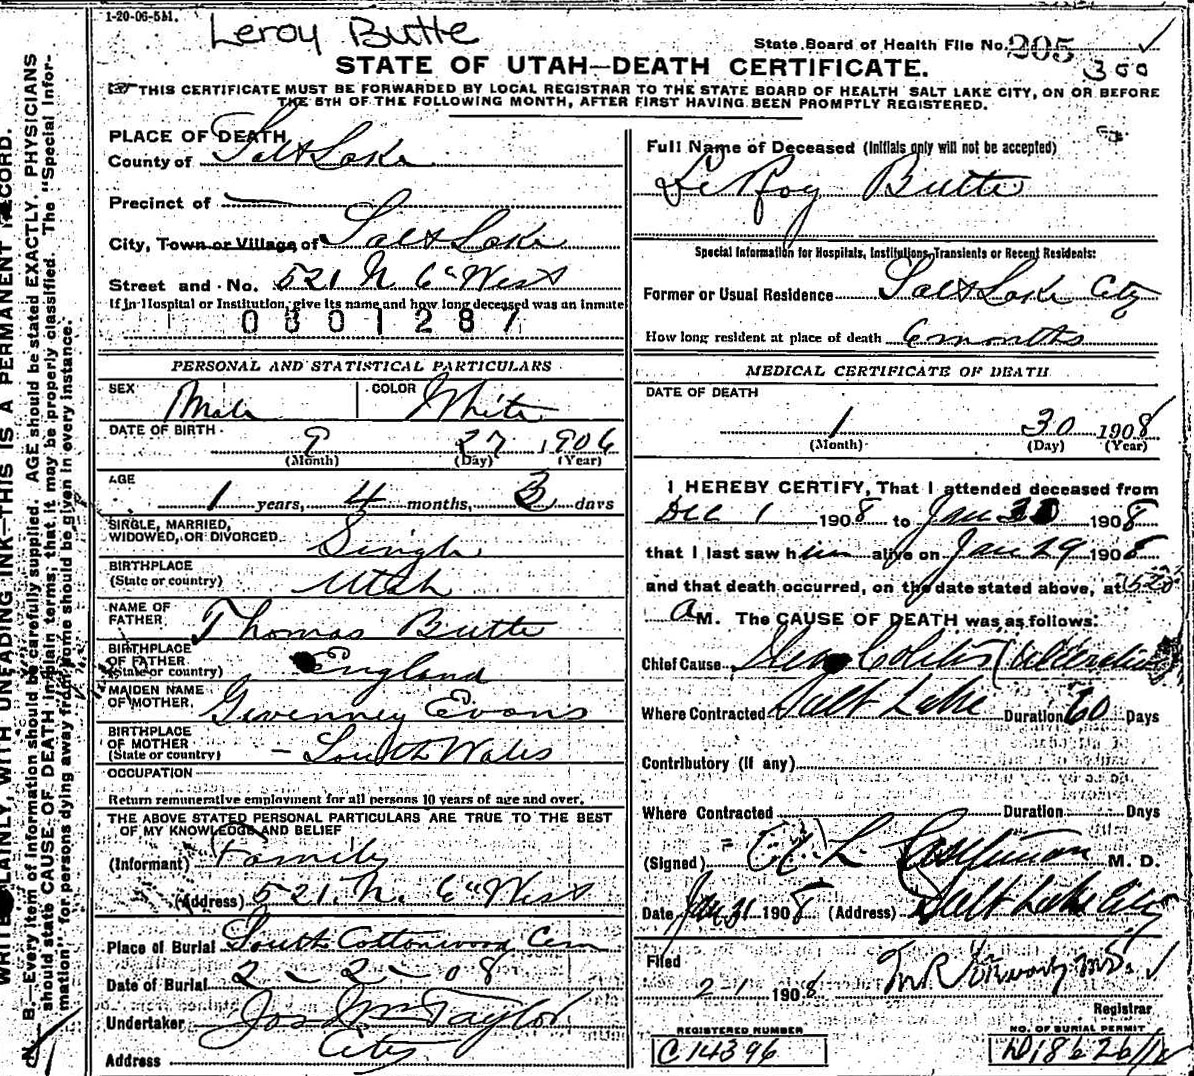 1-20-06-5M.
Leroy Butte
State Board of Health File No. 205
300
STATE OF UTAH—DEATH CERTIFICATE.
THIS CERTIFICATE MUST BE FORWARDED BY LOCAL REGISTRAR TO THE STATE BOARD OF HEALTH SALT LAKE CITY, ON OR BEFORE
THE 5TH OF THE FOLLOWING MONTH, AFTER FIRST HAVING BEEN PROMPTLY REGISTERED.
PLACE OF DEATH
County of Salt Lake
Precinct of —
City, Town or Village of Salt Lake
Street and No. 521 N. 6" West
If in Hospital or Institution, give its name and how long deceased was an inmate
0801287
PERSONAL AND STATISTICAL PARTICULARS
SEX Male COLOR White
DATE OF BIRTH 9 27 1906
(Month) (Day) (Year)
AGE 1 years, 4 months, 3 days
SINGLE, MARRIED,
WIDOWED, OR DIVORCED Single
BIRTHPLACE
(State or country) Utah
NAME OF
FATHER Thomas Butte
BIRTHPLACE
OF FATHER
(State or country) England
MAIDEN NAME
OF MOTHER Gwenney Evans
BIRTHPLACE
OF MOTHER
(State or country) South Wales
OCCUPATION
Return remunerative employment for all persons 10 years of age and over.
THE ABOVE STATED PERSONAL PARTICULARS ARE TRUE TO THE BEST
OF MY KNOWLEDGE AND BELIEF
(Informant) Family
(Address) 521. N. 6" West
Place of Burial South Cottonwood Cem
Date of Burial 2-2-08
Undertaker Jos Wm Taylor
Address City
Full Name of Deceased (Initials only will not be accepted)
LeRoy Butte
Special Information for Hospitals, Institutions, Transients or Recent Residents:
Former or Usual Residence Salt Lake City
How long resident at place of death 6 months
MEDICAL CERTIFICATE OF DEATH
DATE OF DEATH
1 30 1908
(Month) (Day) (Year)
I HEREBY CERTIFY, That I attended deceased from
Dec 1 1908 to Jan 30 1908
that I last saw him alive on Jan 29 1908
and that death occurred, on the date stated above, at
a M. The CAUSE OF DEATH was as follows:
Chief Cause Colitis (Ulcerative
Where Contracted Salt Lake Duration 60 Days
Contributory (if any)
Where Contracted Duration Days
(Signed) M. D.
Date Jan 31 1908 (Address) Salt Lake City
Filed
2 1 1908
Registrar
REGISTERED NUMBER
C 14396
NO. OF BURIAL PERMIT
WRITE PLAINLY, WITH UNFADING INK—THIS IS A PERMANENT RECORD.
N. B.—Every item of information should be carefully supplied. AGE should be stated EXACTLY. PHYSICIANS
should state CAUSE OF DEATH in plain terms, that it may be properly classified. The "Special Infor-
mation" for persons dying away from home should be given in every instance.